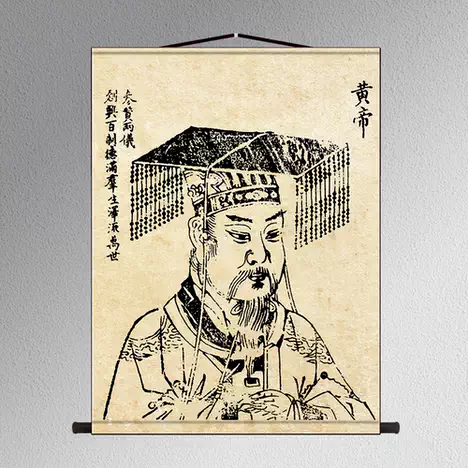 黃帝
参贊兩儀
創興百制德滿羣生澤流萬世